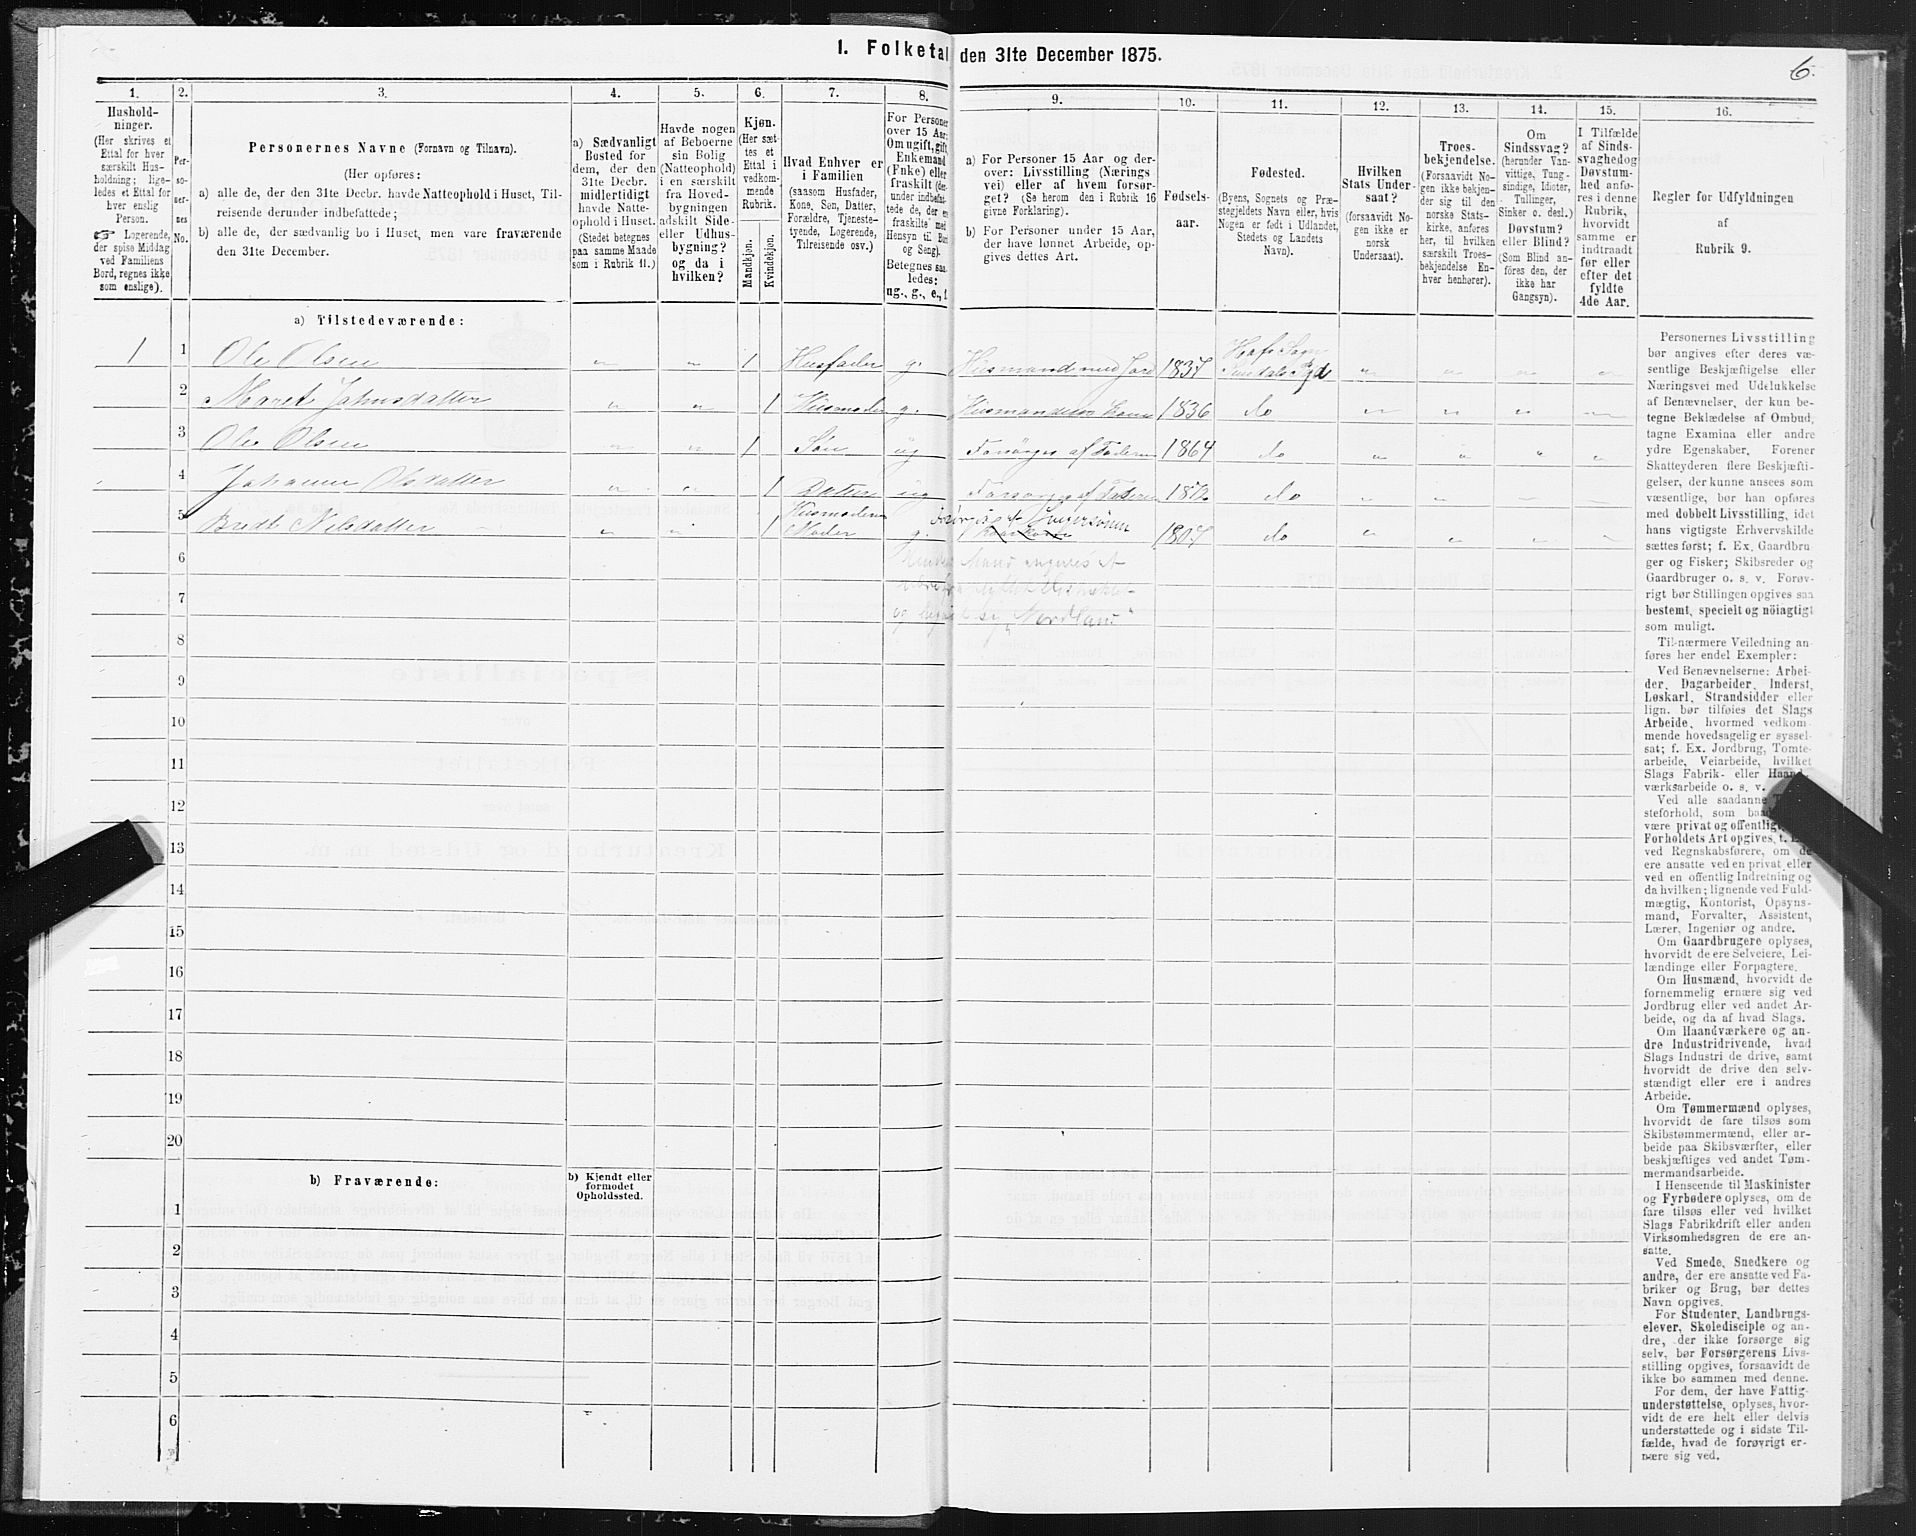 1. Folketal den 31te December 1875.
6.
1. 2. 3. 4. 5. 6. 7. 8. 9. 10. 11. 12. 13. 14. 15. 16.
Hushold-
ninger.
(Her skrives et
Ettal for hver
særskilt Hus-
holdning; lige-
ledes et Ettal for
hver enslig
Person.
☞ Logerende,
der spise Middag
ved Familiens
Bord, regnes ikke
som enslige).
Per-
so-
ner-
nes
No.
Personernes Navne (Fornavn og Tilnavn).
(Her opføres:
a) alle de, der den 31te Decbr. havde Natteophold i Huset, Til-
reisende derunder indbefattede;
b) alle de, der sædvanlig bo i Huset, men vare fraværende
den 31te December.
a) Sædvanligt
Bosted for
dem, der den
31te Decbr.
midlertidigt
havde Natte-
ophold i Huset.
(Stedet betegnes
paa samme Maade
som i Rubrik 11.)
Havde nogen
af Beboerne
sin Bolig
(Natteophold)
i en særskilt
fra Hoved-
bygningen
adskilt Side-
eller Udhus-
bygning?
og da i
hvilken?
Kjøn.
(Her sæt-
tes et
Ettal i
vedkom-
mende
Rubrik.
Mandkjøn.
Kvindekjøn.
Hvad Enhver er
i Familien
(saasom Husfader,
Kone, Søn, Datter,
Forældre, Tjeneste-
tyende, Logerende,
Tilreisende osv.)
For Personer
over 15 Aar:
Om ugift, gift,
Enkemand
(Enke) eller
fraskilt (der-
under indbefat-
tede de, der ere
fraskilte med
Hensyn til Bord
og Seng).
Betegnes saa-
ledes:
ug., g., e., f.
a) For Personer 15 Aar og der-
over: Livsstilling (Nærings-
vei) eller af hvem forsør-
get? (Se herom den i Rubrik 16
givne Forklaring).
b) For Personer under 15 Aar,
der have lønnet Arbeide, op-
gives dettes Art.
Fødsels-
aar.
Fødested.
(Byens, Sognets og Præ-
stegjeldets Navn eller, hvis
Nogen er født i Udlandet,
Stedets og Landets
Navn).
Hvilken
Stats Under-
saat?
(forsaavidt No-
gen ikke er
norsk
Undersaat).
Troes-
bekjendelse.
(Forsaavidt No-
gen ikke bekjen-
der sig til den
norske Stats-
kirke, anføres
her, til hvilken
særskilt Troes-
bekjendelse En-
hver henhører).
Om
Sindssvag?
(herunder Van-
vittige, Tung-
sindige, Idioter,
Tullinger,
Sinker o. desl.)
Døvstum?
eller Blind?
(Som Blind an-
føres den, der
ikke har
Gangsyn).
I Tilfælde
af Sinds-
svaghed og
Døvstum-
hed anfø-
res i denne
Rubrik,
hvorvidt
samme er
indtraadt
før eller
efter det
fyldte
4de Aar.
Regler for Udfyldningen
af
Rubrik 9.
a) Tilstedeværende:
1 1 Ole Olsen „ „ 1 Husfader g. Husmand med Jord 1837 Hofs Sogn Sundals Pgd „ „ „ „
2 Marit Jahnsdatter „ „ 1 Husmoder g. Husmandens Kone 1836 do „ „ „ „
3 Ole Olsen „ „ 1 Søn ug Forsørges af Faderen 1864 do „ „ „ „
4 Johanne Olsdatter „ „ 1 Datter ug Forsørges af Faderen do „ „ „ „
5 Nilsdatter „ „ 1 Husmoderens Moder g. 1807 do „ „ „ „
Nordland
6
7
8
9
10
11
12
13
14
15
16
17
18
19
20
b) Fraværende:
b) Kjendt eller
formodet
Opholdssted.
1
2
3
4
5
6
Personernes Livsstilling
bør angives efter deres væ-
sentlige Beskjæftigelse eller
Næringsvei med Udelukkelse
af Benævnelser, der kun be-
tegne Beklædelse af Ombud,
tagne Examina eller andre
ydre Egenskaber. Forener
Skatteyderen flere Beskjæfti-
gelser, der kunne ansees som
væsentlige, bør han opføres
med dobbelt Livsstilling, idet
hans vigtigste Erhvervskilde
sættes først; f. Ex. Gaardbru-
ger og Fisker; Skibsreder og
Gaardbruger o. s. v. Forøv-
rigt bør Stillingen opgives saa
bestemt, specielt og nöiagtigt
som muligt.
Til nærmere Veiledning an-
føres her endel Exempler:
Ved Benævnelserne: Arbei-
der, Dagarbeider, Inderst,
Løskarl, Strandsidder eller
lign. bør tilføies det Slags
Arbeide, hvormed vedkom-
mende hovedsagelig er syssel-
sat; f. Ex. Jordbrug, Tomte-
arbeide, Veiarbeide, hvilket
Slags Fabrik- eller Haand-
værksarbeide o. s. v.
Ved alle saadanne
steforhold, som
være privat og offentlig,
Forholdets Art opgives,
ved Regnskabsførere, om de
ere ansatte ved en privat eller
ved en offentlig Indretning og
da hvilken; lignende ved Fuld-
mægtig, Kontorist, Opsyns-
mand, Forvalter, Assistent,
Lærer, Ingeniør og andre.
Om Gaardbrugere oplyses,
hvorvidt de ere Selveiere, Lei-
lændinge eller Forpagtere.
Om Husmænd, hvorvidt de
fornemmelig ernære sig ved
Jordbrug eller ved andet Ar-
beide, og da af hvad Slags.
Om Haandværkere og an-
dre Industridrivende, hvad
Slags Industri de drive, samt
hvorvidt de drive den selv-
stændigt eller ere i andres
Arbeide.
Om Tømmermænd oplyses,
hvorvidt de fare tilsøs som
Skibstømmermænd, eller ar-
beide paa Skibsværfter, eller
beskjæftiges ved andet Tøm-
mermandsarbeide.
I Henseende til Maskinister
og Fyrbødere oplyses, om de
fare tilsøs eller ved hvilket
Slags Fabrikdrift eller anden
Virksomhedsgren de ere an-
satte.
Ved Smede, Snedkere og
andre, der ere ansatte ved Fa-
briker og Brug, bør dettes
Navn opgives.
For Studenter, Landbrugs-
elever, Skoledisciple og an-
dre, der ikke forsørge sig
selv, bør Forsørgerens Livs-
stilling opgives, forsaavidt de
ikke bo sammen med denne.
For dem, der have Fattig-
understøttelse, oplyses, hvor-
vidt de ere helt eller delvis
understøttede og i sidste Til-
fælde, hvad de forøvrigt er-
nære sig ved.